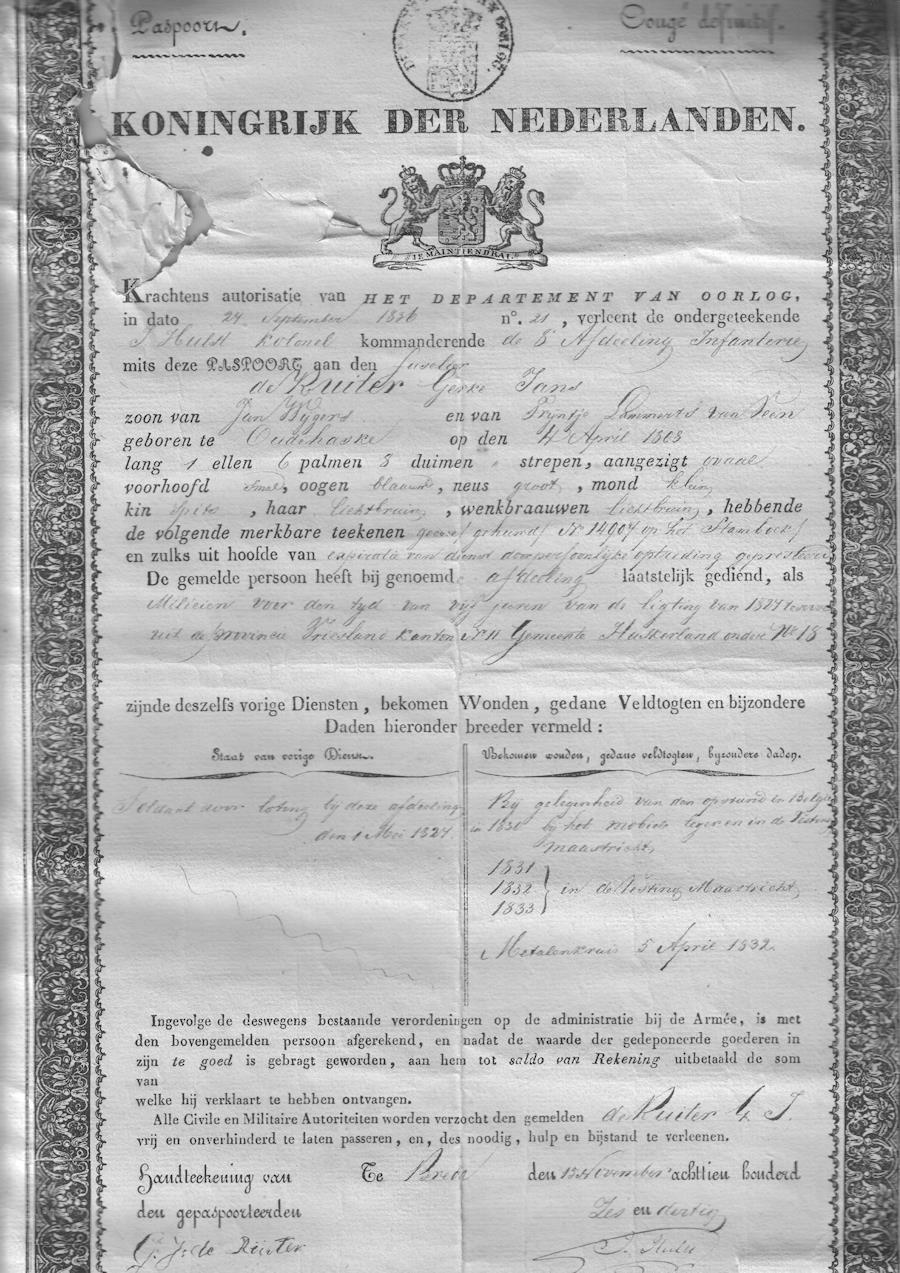 Paspoort.
Congé définitif.
KONINGRIJK DER NEDERLANDEN.
JE MAINTIENDRAI
Krachtens autorisatie van HET DEPARTEMENT VAN OORLOG,
in dato 24 September 1836 n°. 21, verleent de ondergeteekende
J Hulst Kolonel kommanderende de 8e Afdeeling Infanterie
mits deze PASPOORT aan den fuselier
de Ruiter Gerke Jans
zoon van Jan Wijgers en van Tryntje Lammerts van Veen
geboren te Oudehaske op den 4 April 1808
lang 1 ellen 6 palmen 8 duimen " strepen, aangezigt ovaal
voorhoofd smal, oogen blaauw, neus groot, mond klein
kin spits, haar lichtbruin, wenkbraauwen lichtbruin, hebbende
de volgende merkbare teekenen geene / gekend / N° 14907 op het Stamboek /
en zulks uit hoofde van expiratie van dienst door persoonlijke opleiding gepresteerd
De gemelde persoon heeft bij genoemde afdeeling laatstelijk gediend, als
Milicien voor den tyd van vyf jaren van de ligting van 1827
uit de provincie Vriesland kanton N° 11 Gemeente Haskerland onder N° 18
zijnde deszelfs vorige Diensten, bekomen Wonden, gedane Veldtogten en bijzondere
Daden hieronder breeder vermeld:
Staat van vorige Dienst.
Bekomen wonden, gedane veldtogten, byzondere daden.
Soldaat door loting bij deze afdeeling
den 1 Mei 1827.
Bij gelegenheid van den opstand in België
in 1830 bij het mobiele leger en in de Vesting
Maastricht,
1831
1832 } in de Vesting Maastricht,
1833
Metalenkruis 5 April 1832.
Ingevolge de deswegens bestaande verordeningen op de administratie bij de Armée, is met
den bovengemelden persoon afgerekend, en nadat de waarde der gedeponeerde goederen in
zijn te goed is gebragt geworden, aan hem tot saldo van Rekening uitbetaald de som
van
welke hij verklaart te hebben ontvangen.
Alle Civile en Militaire Autoriteiten worden verzocht den gemelden de Ruiter G. J.
vrij en onverhinderd te laten passeren, en, des noodig, hulp en bijstand te verleenen.
Handteekening van Te Breda den November achttien honderd
den gepaspoorteerden Zes en dertig
G. J. de Ruiter J. Hulst